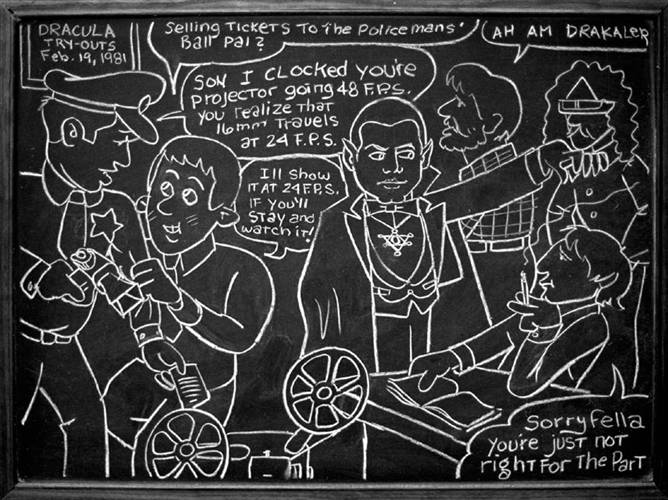 DRACULA
TRY-OUTS
Feb. 19, 1981
Selling Tickets To The Policemans'
Ball Pal?
AH AM DRAKALER
SON I CLOCKED YOU'RE
projector going 48 F.P.S.
you realize that
16mm Travels
at 24 F.P.S.
I'll Show
IT AT 24 F.P.S.
IF YOU'll
STAY and
watch it!
Sorry Fella
You're just not
right For The Part